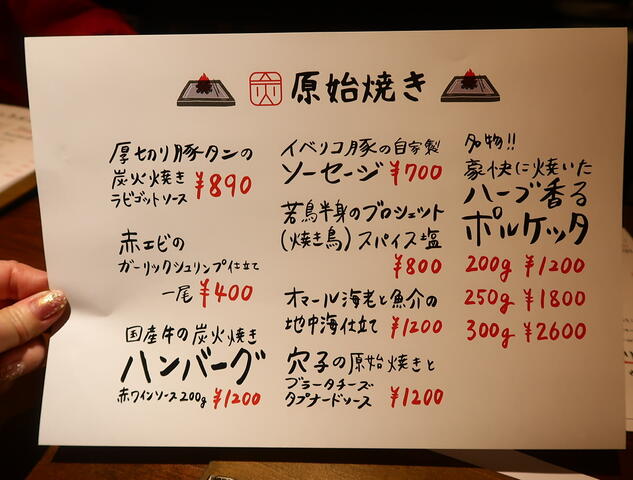 原始焼き
厚切り豚タンの
炭火焼き
ラビゴットソース
¥890
赤エビの
ガーリックシュリンプ仕立て
一尾 ¥400
国産牛の炭火焼き
ハンバーグ
赤ワインソース200g ¥1200
イベリコ豚の自家製
ソーセージ ¥700
若鳥半身のブロシェット
(焼き鳥)スパイス塩
¥800
オマール海老と魚介の
地中海仕立て ¥1200
穴子の原始焼きと
ブラータチーズ
タプナードソース ¥1200
名物!!
豪快に焼いた
ハーブ香る
ポルケッタ
200g ¥1200
250g ¥1800
300g ¥2600